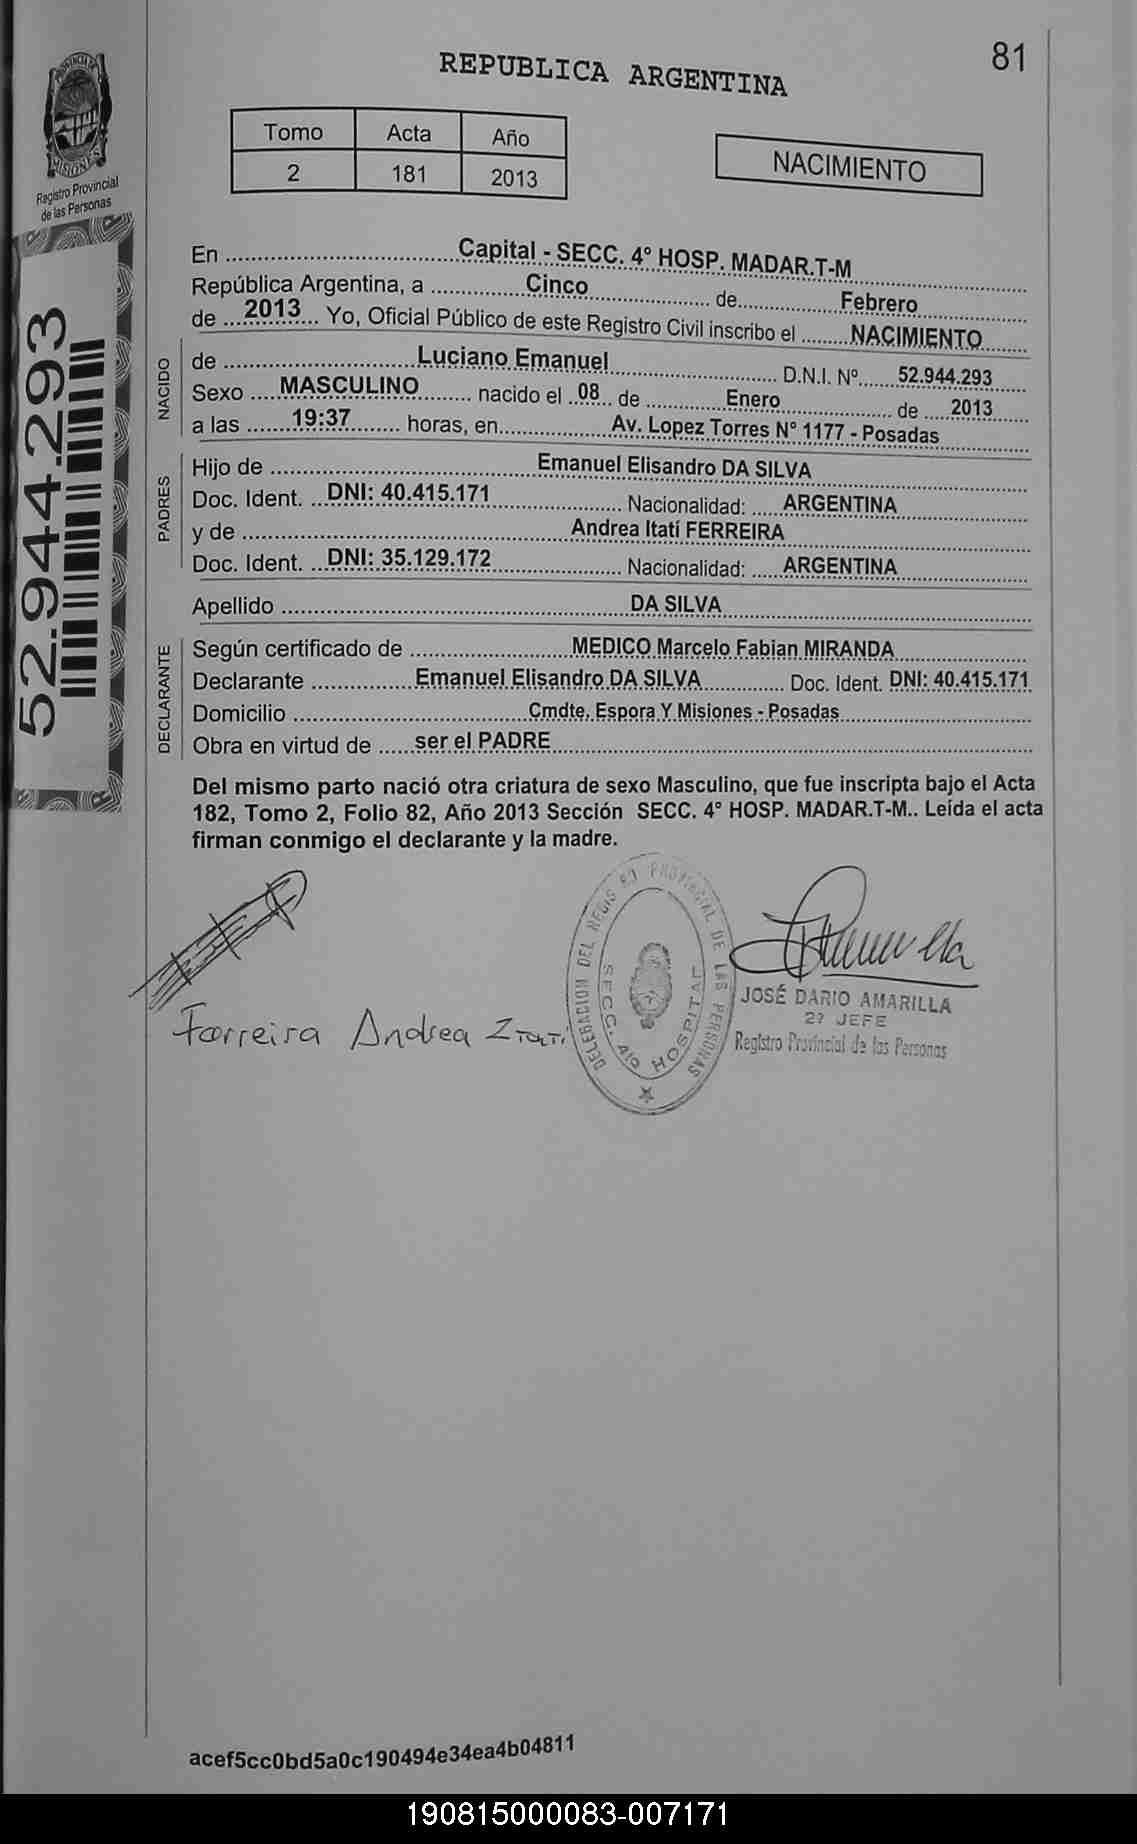 81
REPUBLICA ARGENTINA
PROVINCIA DE
MISIONES
Registro Provincial
de las Personas
Tomo Acta Año
2 181 2013
NACIMIENTO
52.944.293
En Capital - SECC. 4º HOSP. MADAR.T-M
República Argentina, a Cinco de Febrero
de 2013 Yo, Oficial Público de este Registro Civil inscribo el NACIMIENTO
NACIDO
de Luciano Emanuel D.N.I. Nº 52.944.293
Sexo MASCULINO nacido el 08 de Enero de 2013
a las 19:37 horas, en Av. Lopez Torres N° 1177 - Posadas
PADRES
Hijo de Emanuel Elisandro DA SILVA
Doc. Ident. DNI: 40.415.171 Nacionalidad: ARGENTINA
y de Andrea Itatí FERREIRA
Doc. Ident. DNI: 35.129.172 Nacionalidad: ARGENTINA
Apellido DA SILVA
DECLARANTE
Según certificado de MEDICO Marcelo Fabian MIRANDA
Declarante Emanuel Elisandro DA SILVA Doc. Ident. DNI: 40.415.171
Domicilio Cmdte. Espora Y Misiones - Posadas
Obra en virtud de ser el PADRE
Del mismo parto nació otra criatura de sexo Masculino, que fue inscripta bajo el Acta
182, Tomo 2, Folio 82, Año 2013 Sección SECC. 4º HOSP. MADAR.T-M.. Leída el acta
firman conmigo el declarante y la madre.
Ferreira Andrea Itatí
DELEGACION DEL REGISTRO PROVINCIAL DE LAS PERSONAS
SECC. 4ta HOSPITAL
JOSÉ DARIO AMARILLA
2º JEFE
Registro Provincial de las Personas
acef5cc0bd5a0c190494e34ea4b04811
190815000083-007171